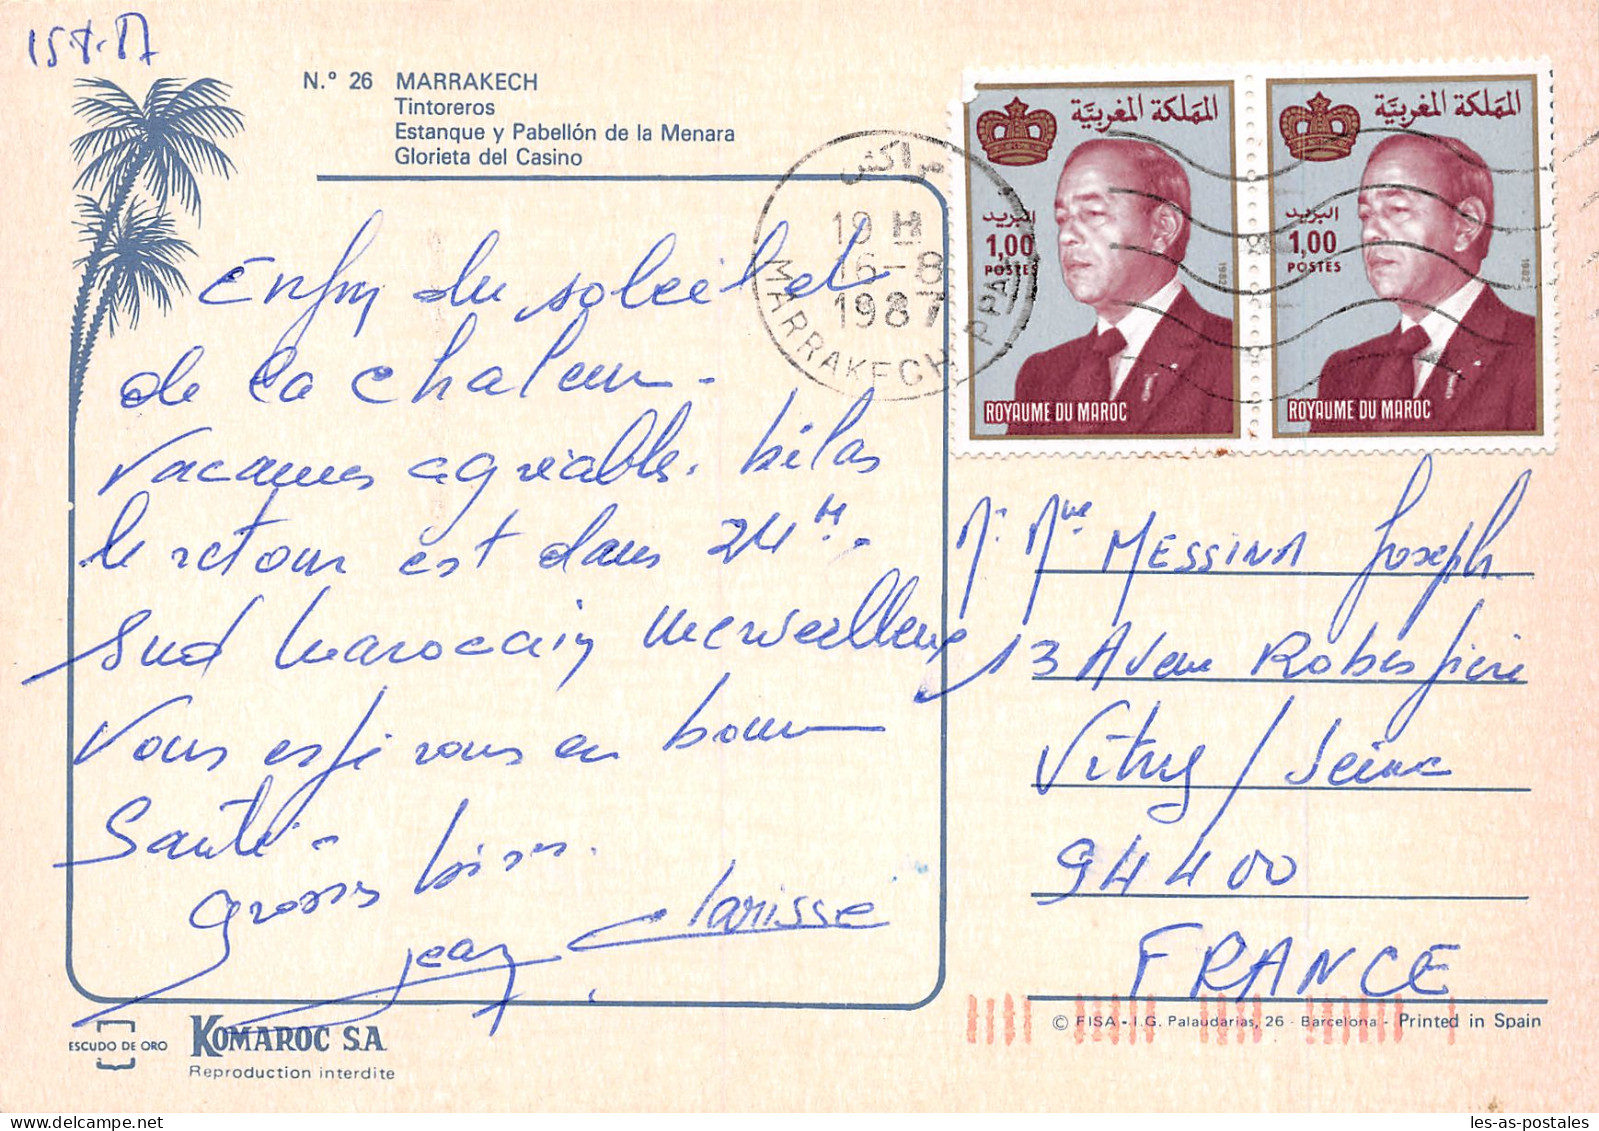 15.8.87
N.º 26 MARRAKECH
Tintoreros
Estanque y Pabellón de la Menara
Glorieta del Casino
Enfin du soleil et
de la chaleur -
Vacances agréables. hélas
le retour est dans 24H -
Sud marocain merveilleux
Vous espère vous en bonne
Santé -
grosses bises.
Jean Clarisse
مراكش
19 H
16-8
1987
MARRAKECH PPAL
المملكة المغربية
البريد
1,00
POSTES
1982
ROYAUME DU MAROC
المملكة المغربية
البريد
1,00
POSTES
1982
ROYAUME DU MAROC
Mr Mme MESSINA Joseph
13 Avenue Robespierre
Vitry / Seine
94400
FRANCE
ESCUDO DE ORO
KOMAROC S.A.
Reproduction interdite
© FISA - I.G. Palaudarias, 26 - Barcelona - Printed in Spain
les-as-postales